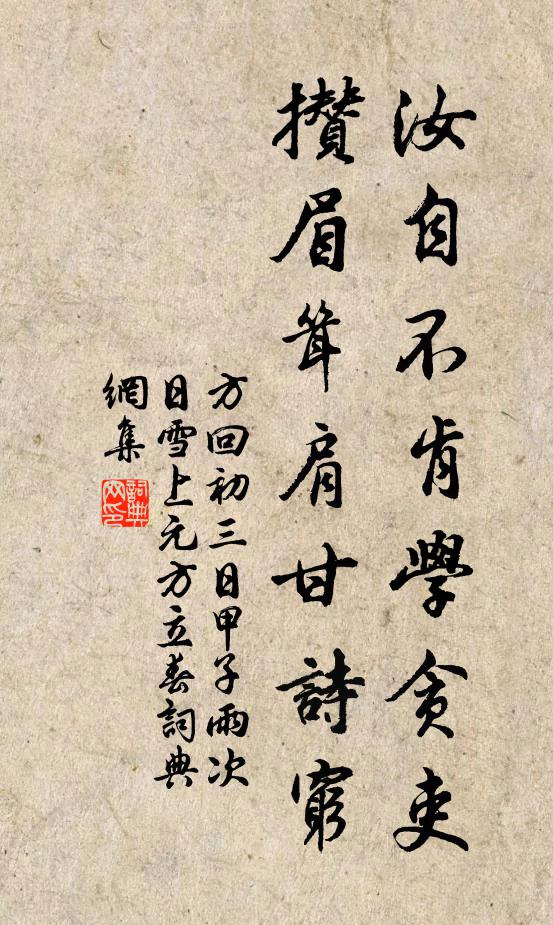 汝自不肯學貪吏
攢眉聳肩甘詩窮
方回初三日甲子雨次
日雪上元方立春詞典
網集
詞典
网印